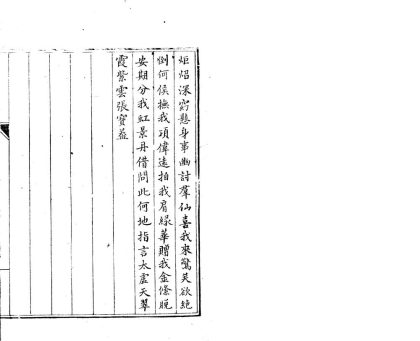 炬焰深窈懸身事幽討羣仙喜我來驚笑欲絕
倒何侯撫我頂偉遠拍我肩綠華贈我金條脫
安期分我紅景丹借問此何地指言太虛天翠
霞紫雲張寶蓋